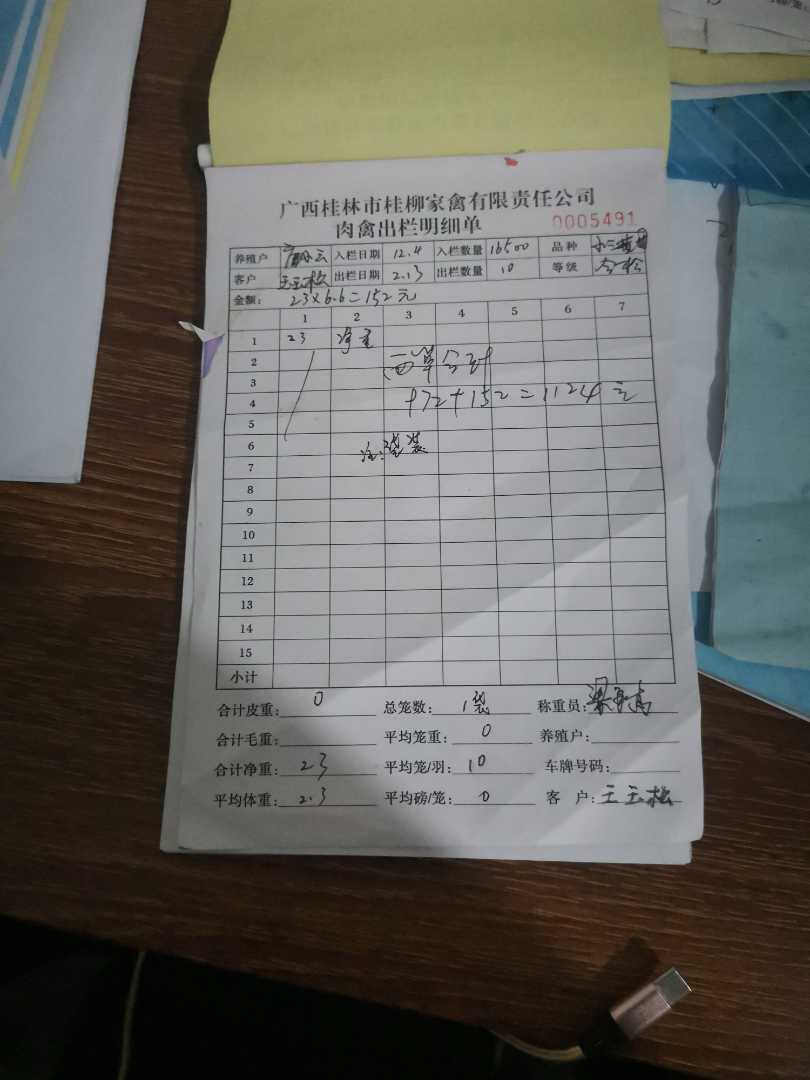 广西桂林市桂柳家禽有限责任公司
肉禽出栏明细单 0005491
养殖户 入栏日期 12.4 入栏数量 16500 品种
客户 王玉松 出栏日期 2.13 出栏数量 10 等级
金额: 23×6.6=152元
1 2 3 4 5 6 7
1 23 净重
2 两单合计
3
4 972+152=1124元
5
6 注:袋装
7
8
9
10
11
12
13
14
15
小计
合计皮重: 0 总笼数: 1袋 称重员: 梁
合计毛重: 平均笼重: 0 养殖户:
合计净重: 23 平均笼/羽: 10 车牌号码:
平均体重: 2.3 平均磅/笼: 0 客 户: 王玉松